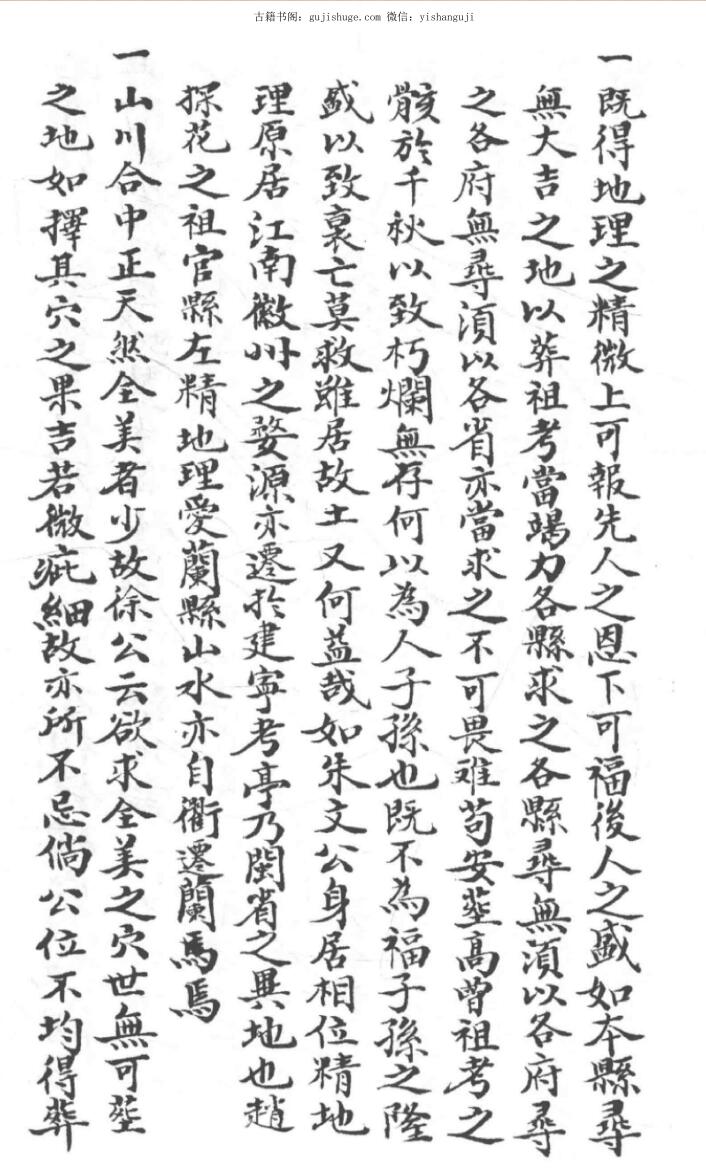 古籍书阁：gujishuge.com 微信：yishanguji
一既得地理之精微上可報先人之恩下可福後人之盛如本縣尋
無大吉之地以葬祖考當竭力各縣求之各縣尋無須以各府尋
之各府無尋須以各省亦當求之不可畏难苟安塟高曾祖考之
骸於千秋以致朽爛無存何以為人子孫也既不為福子孫之隆
盛以致衰亡莫救雖居故土又何益哉如朱文公身居相位精地
理原居江南徽州之婺源亦遷於建寧考亭乃閩省之異地也趙
探花之祖官縣左精地理愛蘭縣山水亦自衢遷蘭焉焉
一山川合中正天然全美者少故徐公云欲求全美之穴世無可塟
之地如擇其穴之果吉若微疵細故亦所不忌倘公位不均得葬